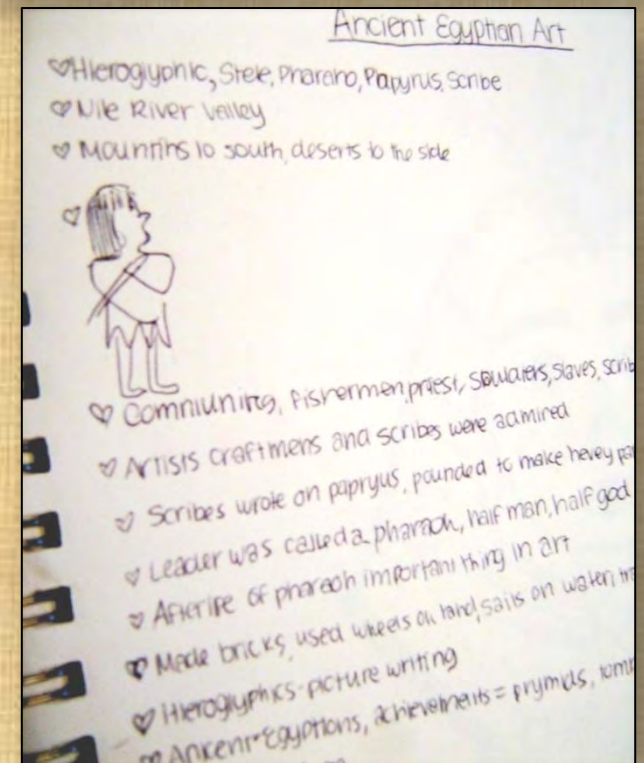 Ancient Egyptian Art
Hieroglyphic, Stele, Pharaho, Papyrus, Scribe
Nile River Valley
Mountins to south, deserts to the side
Comniunity, Fishermen, priest, slaves, scrib
Artists craftmens and scribes were admired
Scribes wrote on papryus, pounded to make hevey pa
Leader was called a pharaoh, half man, half god
Afterlife of pharaoh important thing in art
Made bricks, used wheels on land, sails on water, tra
Hieroglyphics-picture writing
Ancient Egyptions, achievements = prymids, tom